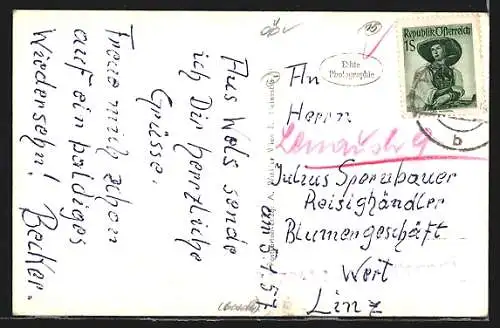 Aus Wels sende
ich Dir herzliche
Grüsse.
Freue mich schon
auf ein paldiges
Wiedersehn! Becker.
am 5.1.57
Echte
Photographie
Republik Österreich
1S
An
Herrn
Lenaustr 9
Julius Spornbauer
Reisighändler
Blumengeschäft
Wert
Linz
b